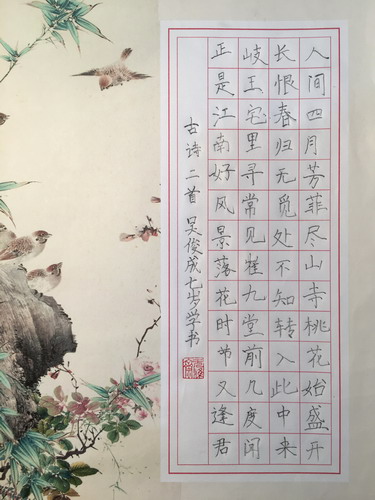 人间四月芳菲尽山寺桃花始盛开
长恨春归无觅处不知转入此中来
岐王宅里寻常见崔九堂前几度闻
正是江南好风景落花时节又逢君
古诗二首 吴俊成七岁学书